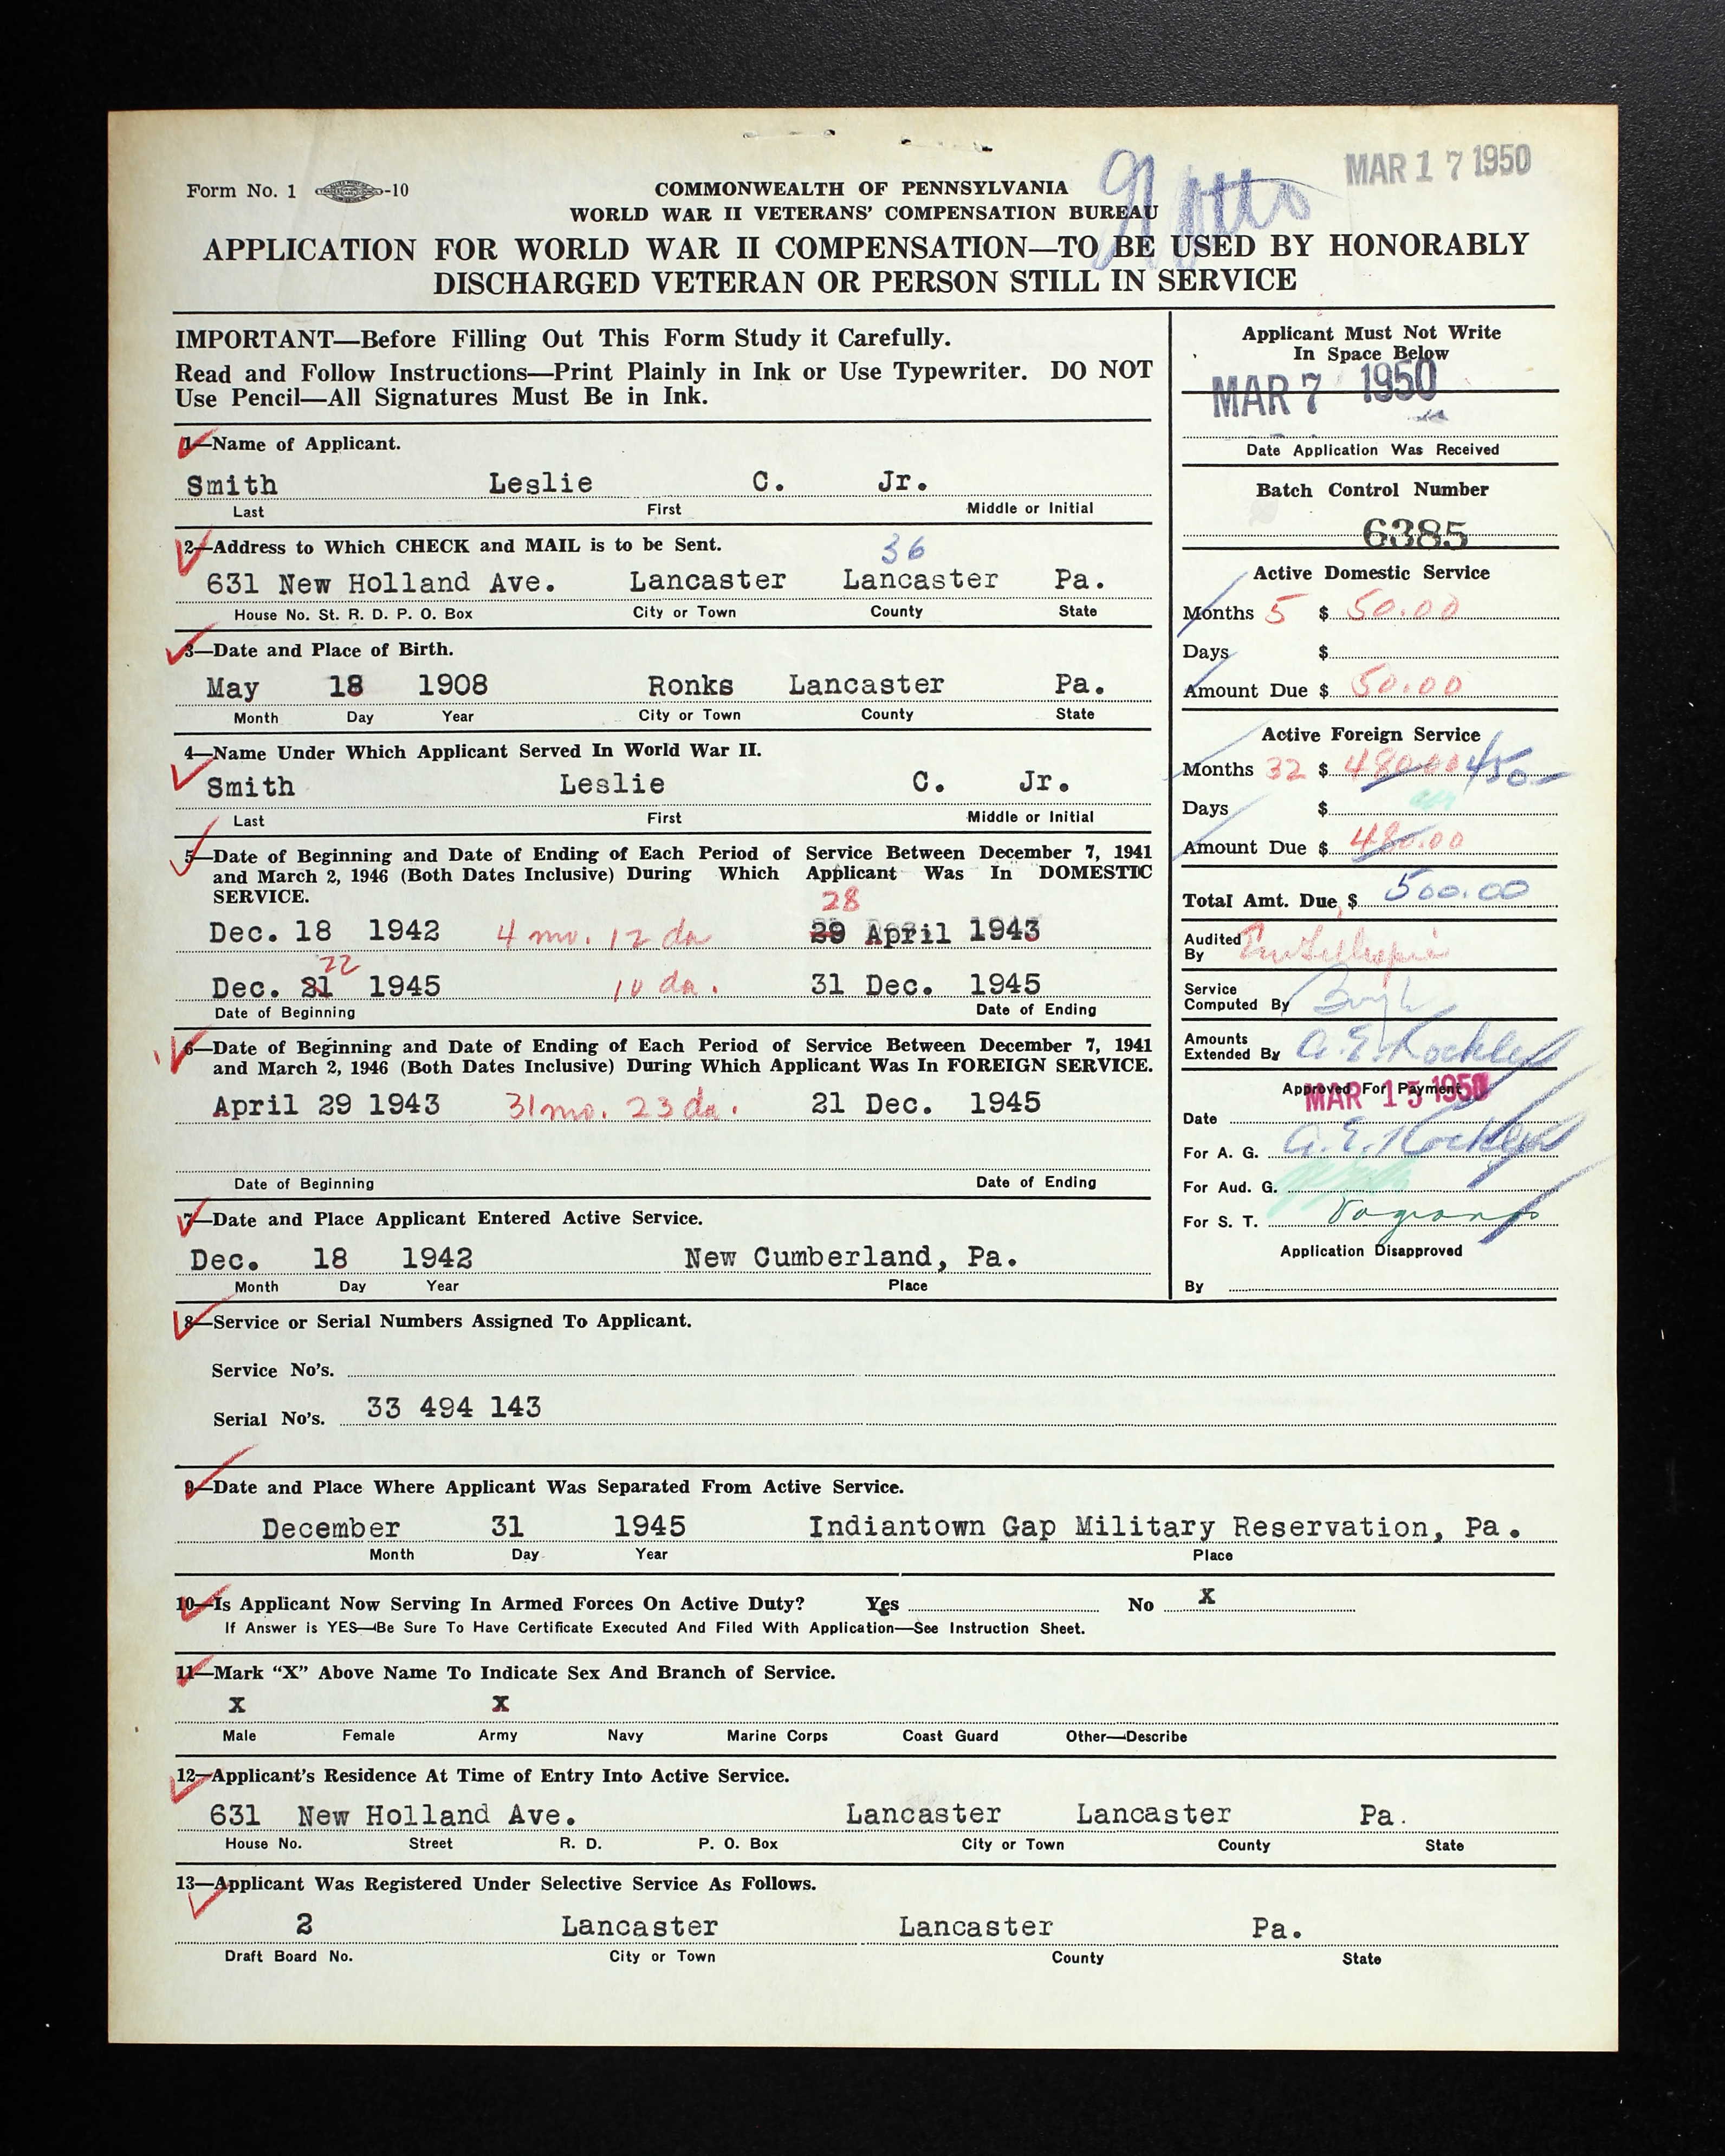 MAR 17 1950
Form No. 1 -10
COMMONWEALTH OF PENNSYLVANIA
WORLD WAR II VETERANS' COMPENSATION BUREAU
APPLICATION FOR WORLD WAR II COMPENSATION—TO BE USED BY HONORABLY
DISCHARGED VETERAN OR PERSON STILL IN SERVICE
IMPORTANT—Before Filling Out This Form Study it Carefully.
Read and Follow Instructions—Print Plainly in Ink or Use Typewriter. DO NOT
Use Pencil—All Signatures Must Be in Ink.
1—Name of Applicant.
Smith Leslie C. Jr.
Last First Middle or Initial
2—Address to Which CHECK and MAIL is to be Sent. 36
631 New Holland Ave. Lancaster Lancaster Pa.
House No. St. R. D. P. O. Box City or Town County State
3—Date and Place of Birth.
May 18 1908 Ronks Lancaster Pa.
Month Day Year City or Town County State
4—Name Under Which Applicant Served In World War II.
Smith Leslie C. Jr.
Last First Middle or Initial
5—Date of Beginning and Date of Ending of Each Period of Service Between December 7, 1941
and March 2, 1946 (Both Dates Inclusive) During Which Applicant Was In DOMESTIC
SERVICE.
28
Dec. 18 1942 4 mo. 12 da 29 April 1943
22
Dec. 21 1945 10 da. 31 Dec. 1945
Date of Beginning Date of Ending
6—Date of Beginning and Date of Ending of Each Period of Service Between December 7, 1941
and March 2, 1946 (Both Dates Inclusive) During Which Applicant Was In FOREIGN SERVICE.
April 29 1943 31 mo. 23 da. 21 Dec. 1945
Date of Beginning Date of Ending
7—Date and Place Applicant Entered Active Service.
Dec. 18 1942 New Cumberland, Pa.
Month Day Year Place
Applicant Must Not Write
In Space Below
MAR 7 1950
Date Application Was Received
Batch Control Number
6385
Active Domestic Service
Months 5 $ 50.00
Days $
Amount Due $ 50.00
Active Foreign Service
Months 32 $ 480.00 450-
Days $
Amount Due $ 480.00
Total Amt. Due $ 500.00
Audited
By
Service
Computed By
Amounts
Extended By A. E. Kockler
Approved For Payment
MAR 15 1950
Date
For A. G. A. E. Kockler
For Aud. G.
For S. T.
Application Disapproved
By
8—Service or Serial Numbers Assigned To Applicant.
Service No's.
Serial No's. 33 494 143
9—Date and Place Where Applicant Was Separated From Active Service.
December 31 1945 Indiantown Gap Military Reservation, Pa.
Month Day Year Place
10—Is Applicant Now Serving In Armed Forces On Active Duty? Yes No X
If Answer is YES—Be Sure To Have Certificate Executed And Filed With Application—See Instruction Sheet.
11—Mark "X" Above Name To Indicate Sex And Branch of Service.
X X
Male Female Army Navy Marine Corps Coast Guard Other—Describe
12—Applicant's Residence At Time of Entry Into Active Service.
631 New Holland Ave. Lancaster Lancaster Pa.
House No. Street R. D. P. O. Box City or Town County State
13—Applicant Was Registered Under Selective Service As Follows.
2 Lancaster Lancaster Pa.
Draft Board No. City or Town County State